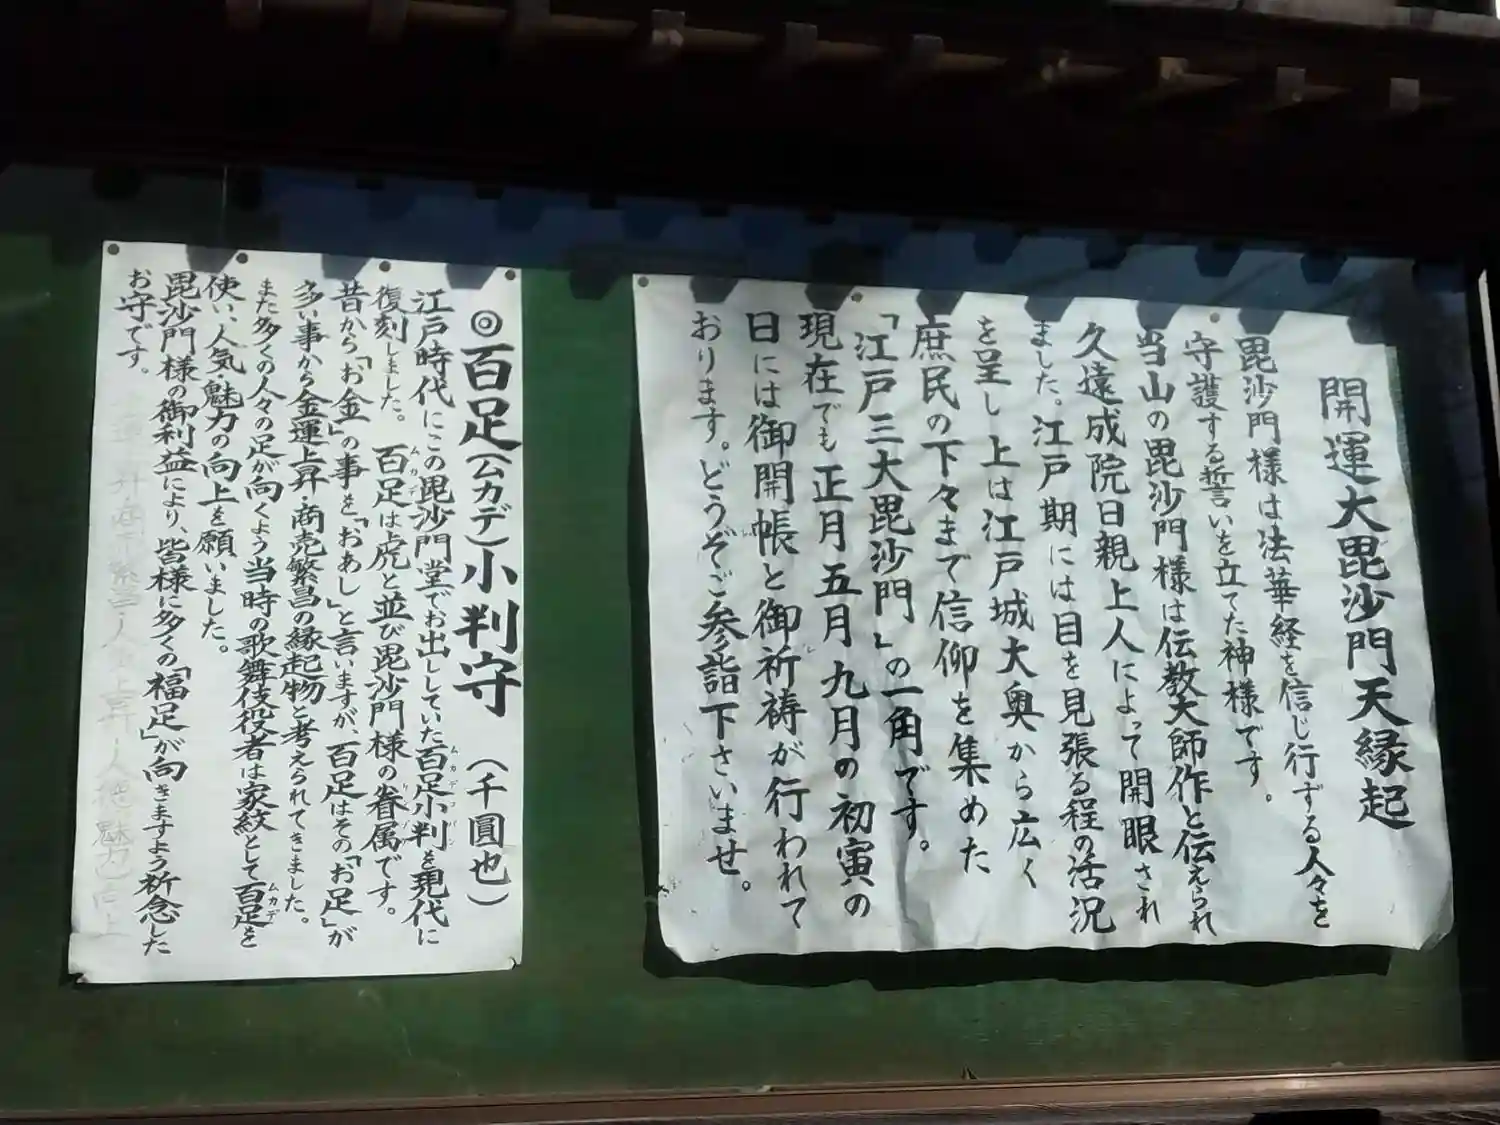 開運大毘沙門天縁起
毘沙門様は法華経を信じ行ずる人々を
守護する誓いを立てた神様です。
当山の毘沙門様は伝教大師作と伝えられ
久遠成院日親上人によって開眼され
ました。江戸期には目を見張る程の活況
を呈し上は江戸城大奥から広く
庶民の下々まで信仰を集めた
「江戸三大毘沙門」の一角です。
現在でも正月五月九月の初寅の
日には御開帳と御祈祷が行われて
おります。どうぞご参詣下さいませ。
◎百足(ムカデ)小判守 (千圓也)
江戸時代にこの毘沙門堂でお出ししていた百足小判を現代に
復刻しました。百足は虎と並び毘沙門様の眷属です。
昔から「お金」の事を「おあし」と言いますが、百足はその「お足」が
多い事から金運上昇・商売繁昌の縁起物と考えられてきました。
また多くの人々の足が向くよう当時の歌舞伎役者は家紋として百足を
使い、人気・魅力の向上を願いました。
毘沙門様の御利益により、皆様に多くの「福足」が向きますよう祈念した
お守です。